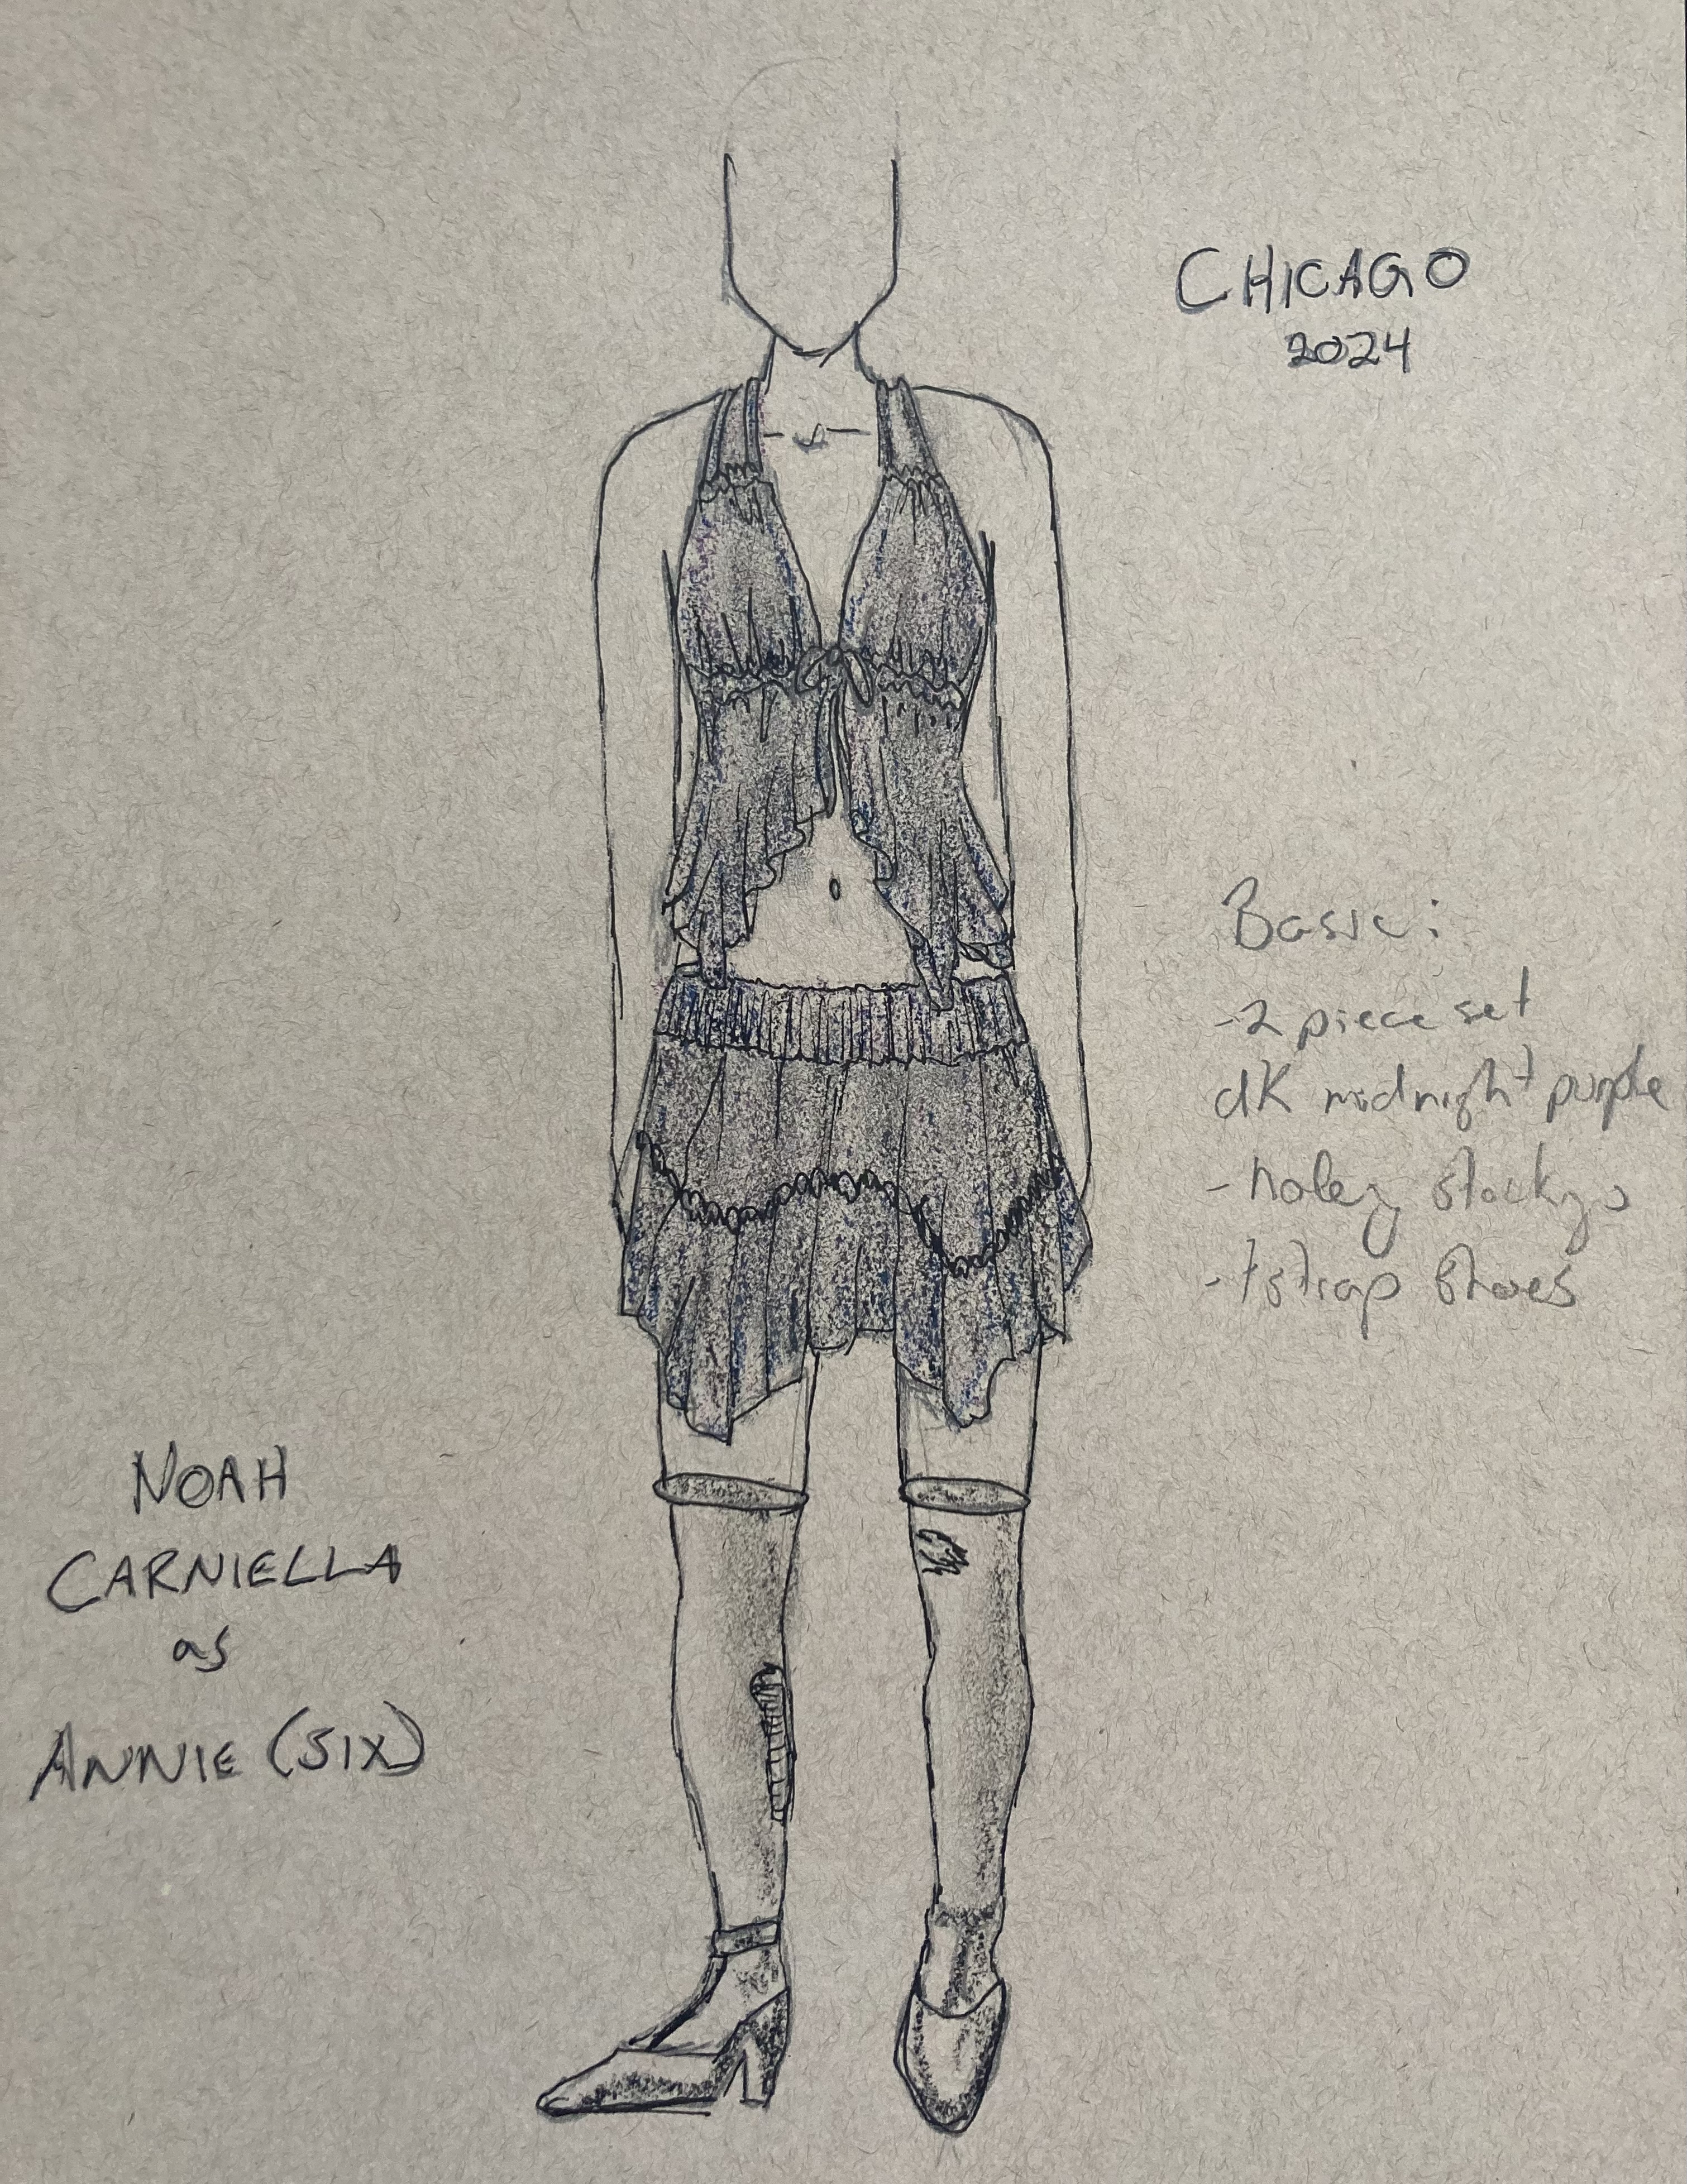 CHICAGO
2024
Basic:
-2 piece set
dK midnight purple
- holey stockings
- tstrap shoes
NOAH
CARNIELLA
as
ANNIE (SIX)